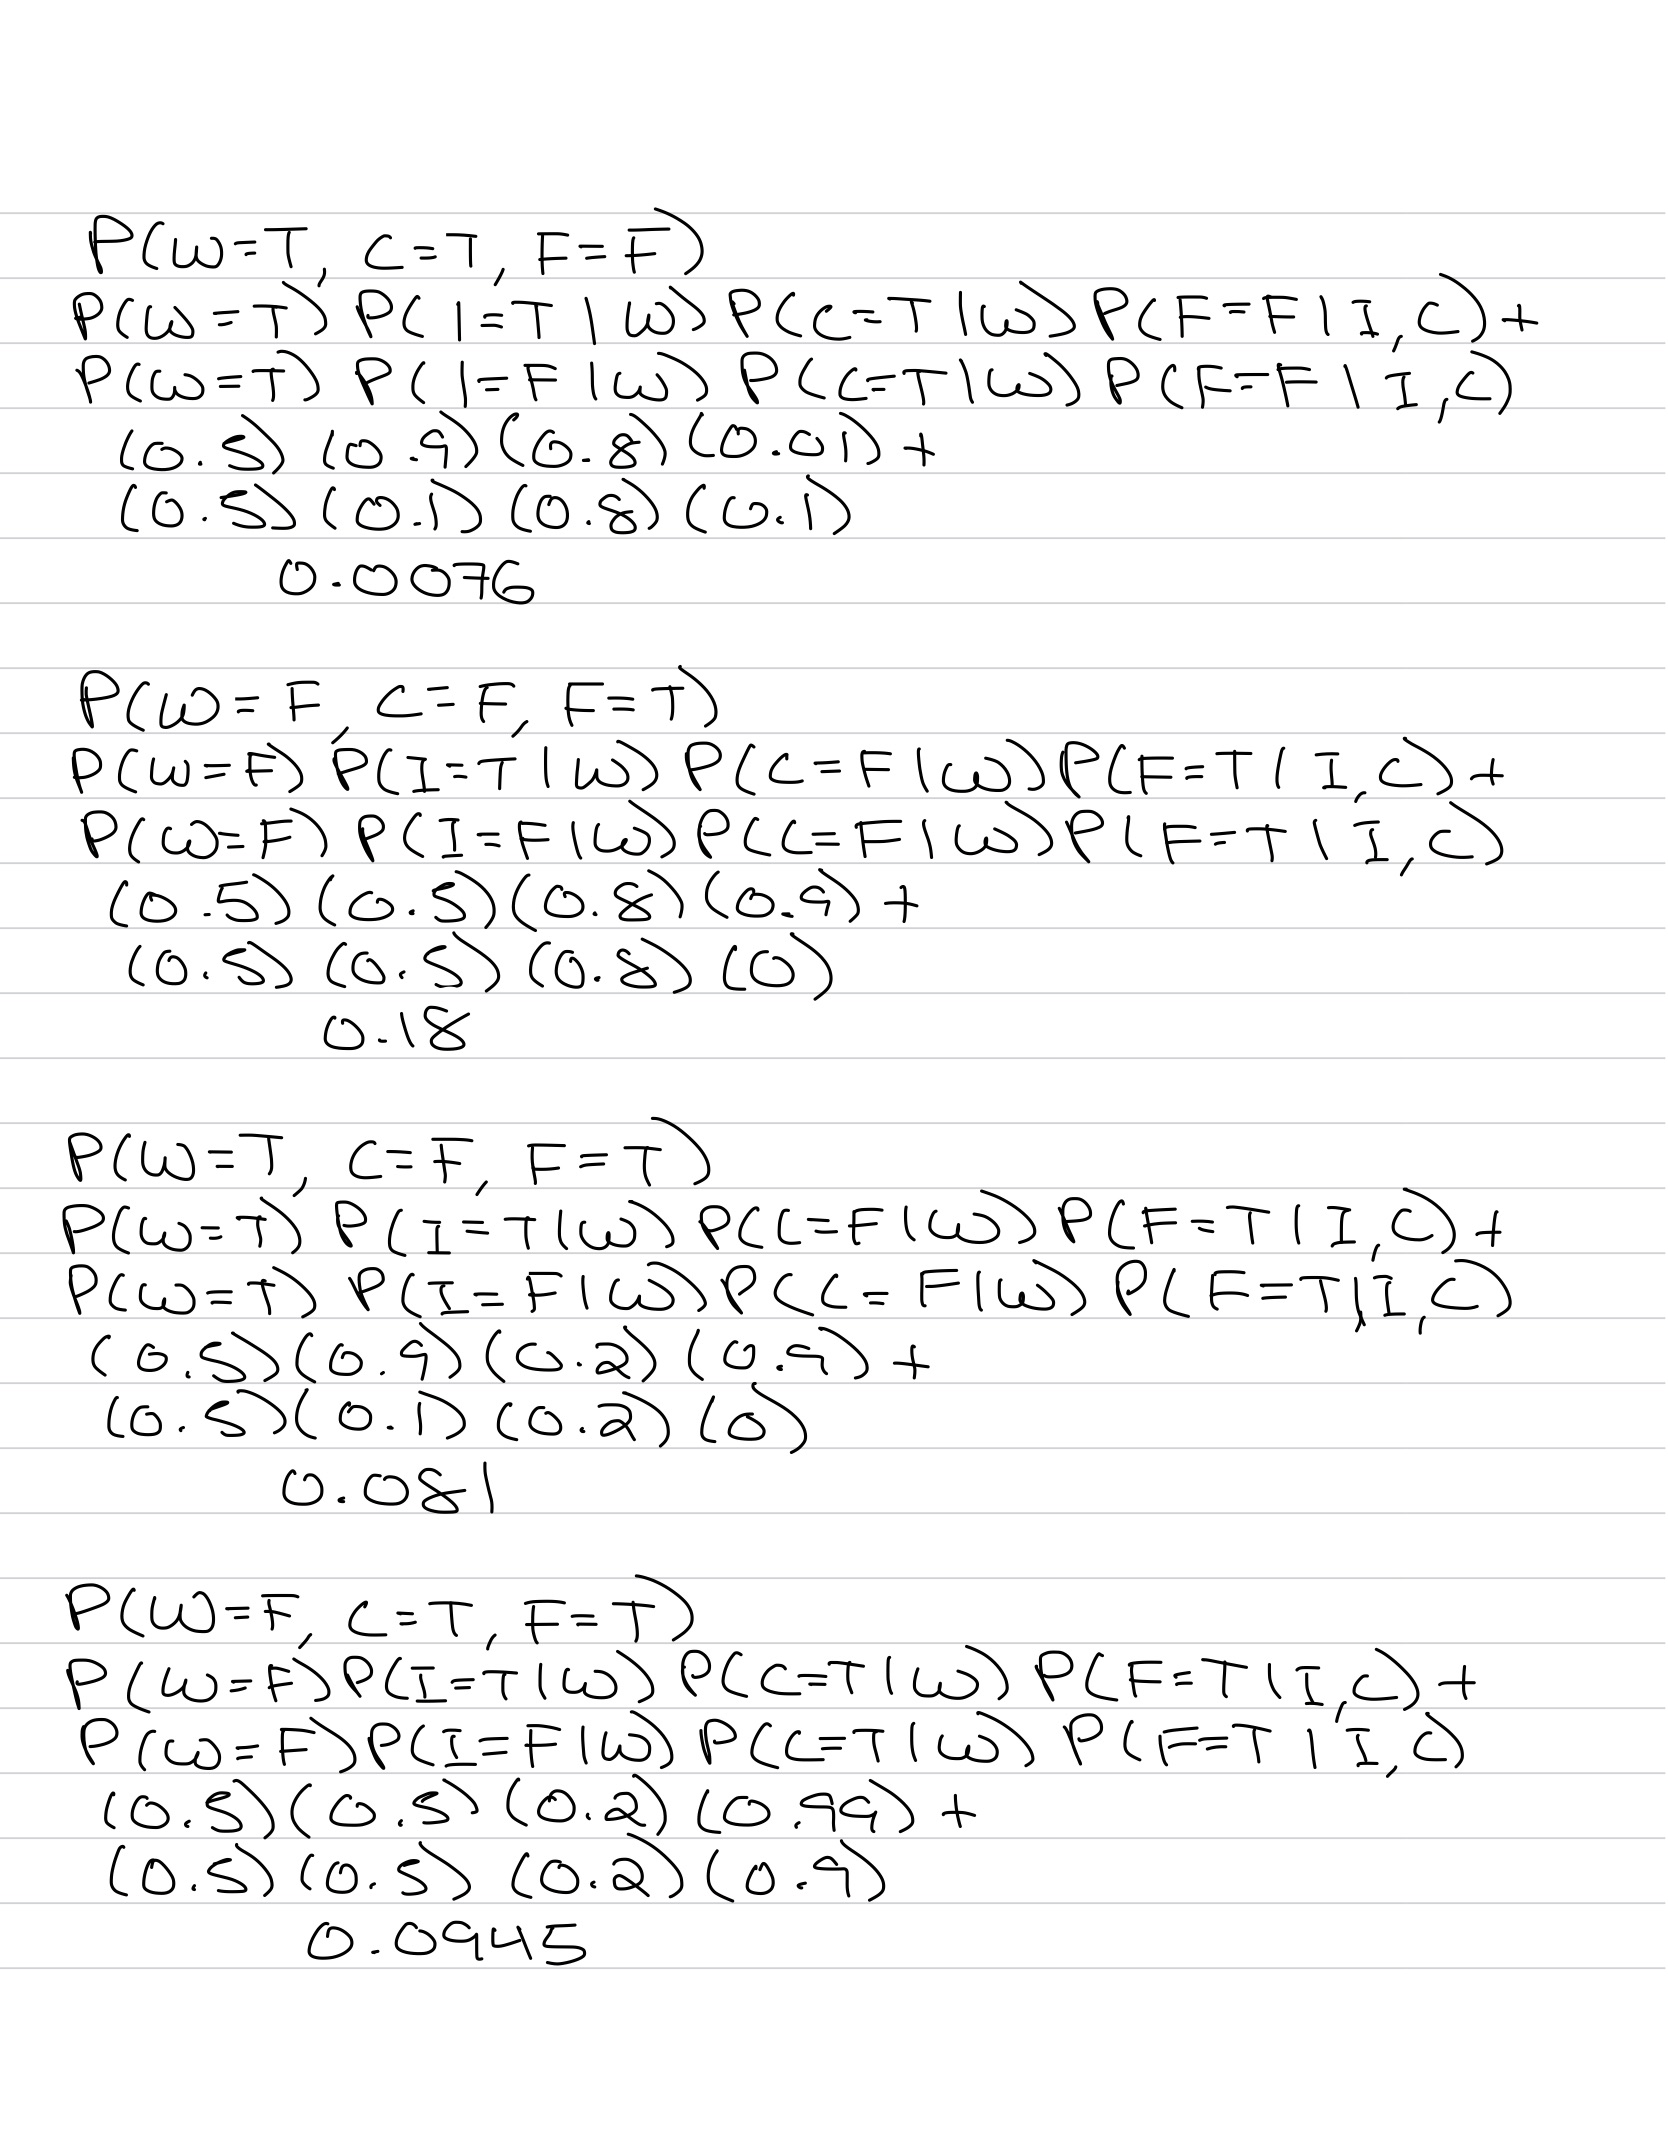 P(W=T, C=T, F=F)
P(W=T) P(I=T|W) P(C=T|W) P(F=F|I,C) +
P(W=T) P(I=F|W) P(C=T|W) P(F=F|I,C)
(0.5) (0.9) (0.8) (0.01) +
(0.5) (0.1) (0.8) (0.1)
0.0076
P(W=F, C=F, F=T)
P(W=F) P(I=T|W) P(C=F|W) P(F=T|I,C) +
P(W=F) P(I=F|W) P(C=F|W) P(F=T|I,C)
(0.5) (0.5) (0.8) (0.9) +
(0.5) (0.5) (0.8) (0)
0.18
P(W=T, C=F, F=T)
P(W=T) P(I=T|W) P(C=F|W) P(F=T|I,C) +
P(W=T) P(I=F|W) P(C=F|W) P(F=T|I,C)
(0.5) (0.9) (0.2) (0.9) +
(0.5) (0.1) (0.2) (0)
0.081
P(W=F, C=T, F=T)
P(W=F) P(I=T|W) P(C=T|W) P(F=T|I,C) +
P(W=F) P(I=F|W) P(C=T|W) P(F=T|I,C)
(0.5) (0.5) (0.2) (0.99) +
(0.5) (0.5) (0.2) (0.9)
0.0945